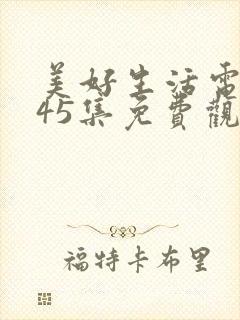 美好生活電
45集免費觀
福特卡布里